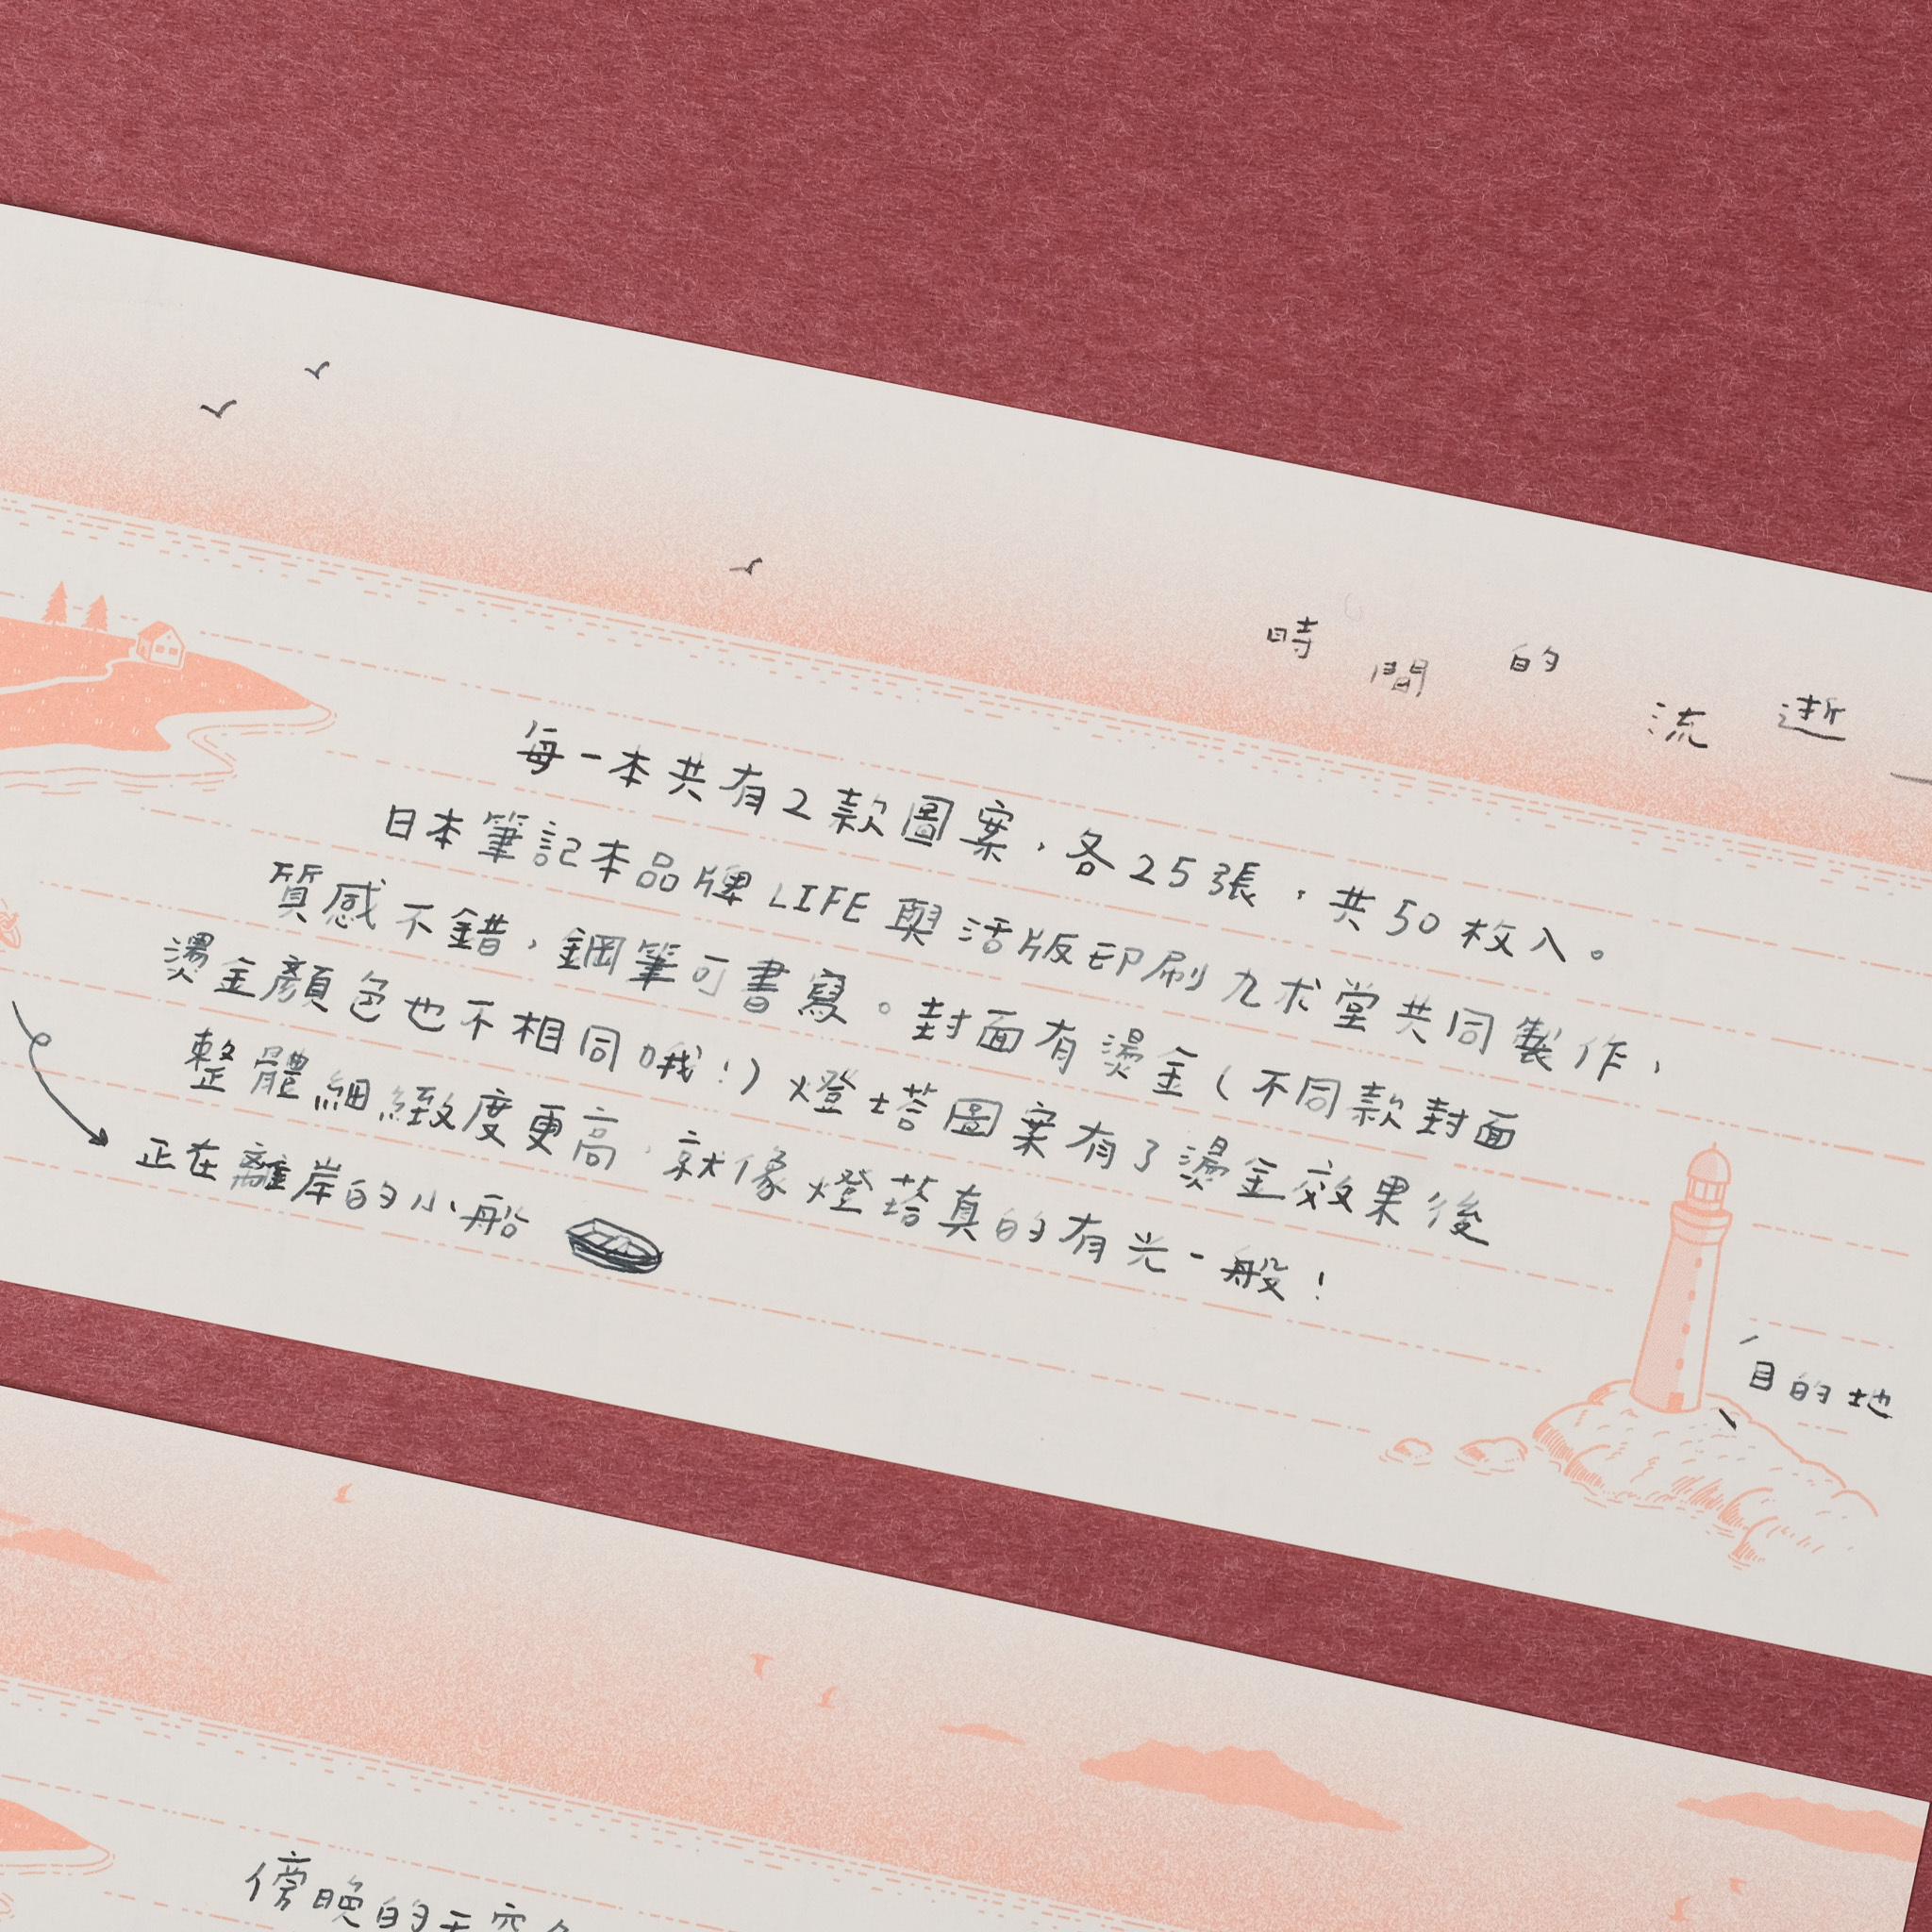 時間的流逝
每一本共有2款圖案,各25張,共50枚入。
日本筆記本品牌 LIFE 與活版印刷九求堂共同製作,
質感不錯,鋼筆可書寫。封面有燙金(不同款封面
燙金顏色也不相同哦!)燈塔圖案有了燙金效果後
整體細緻度更高,就像燈塔真的有光一般!
正在離岸的小船
目的地
傍晚的天空